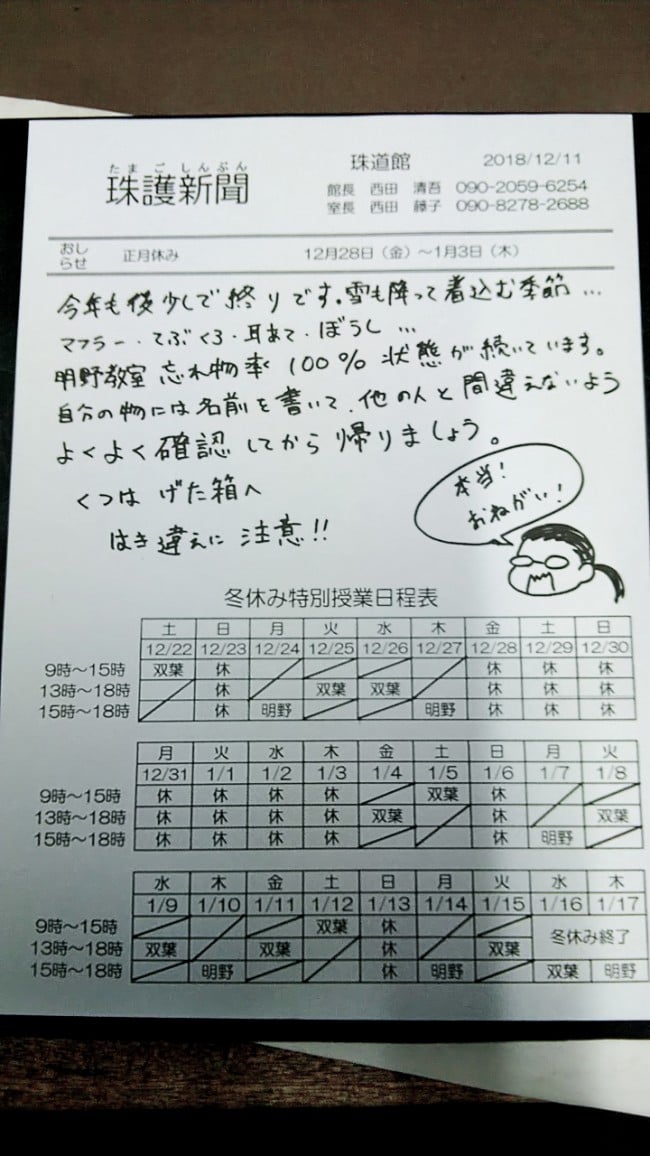 たまごしんぶん
珠護新聞
珠道館 2018/12/11
館長 西田 清吾 090-2059-6254
室長 西田 藤子 090-8278-2688
おしらせ 正月休み 12月28日（金）～1月3日（木）
今年も後少しで終りです。雪も降って着込む季節…
マフラー・てぶくろ・耳あて・ぼうし…
明野教室 忘れ物率 100% 状態が続いています。
自分の物には名前を書いて、他の人と間違えないよう
よくよく確認してから帰りましょう。
くつは げた箱へ
はき違えに 注意!!
本当!
おねがい!
冬休み特別授業日程表
土 日 月 火 水 木 金 土 日
12/22 12/23 12/24 12/25 12/26 12/27 12/28 12/29 12/30
9時～15時 双葉 休 休 休 休
13時～18時 休 双葉 双葉 休 休 休
15時～18時 休 明野 明野 休 休 休
月 火 水 木 金 土 日 月 火
12/31 1/1 1/2 1/3 1/4 1/5 1/6 1/7 1/8
9時～15時 休 休 休 休 双葉 休
13時～18時 休 休 休 休 双葉 休 双葉
15時～18時 休 休 休 休 休 明野
水 木 金 土 日 月 火 水 木
1/9 1/10 1/11 1/12 1/13 1/14 1/15 1/16 1/17
9時～15時 双葉 休 冬休み終了
13時～18時 双葉 双葉 休 双葉
15時～18時 明野 休 明野 双葉 明野